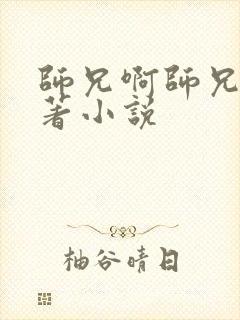 師兄啊師兄
著小説
柚谷晴日